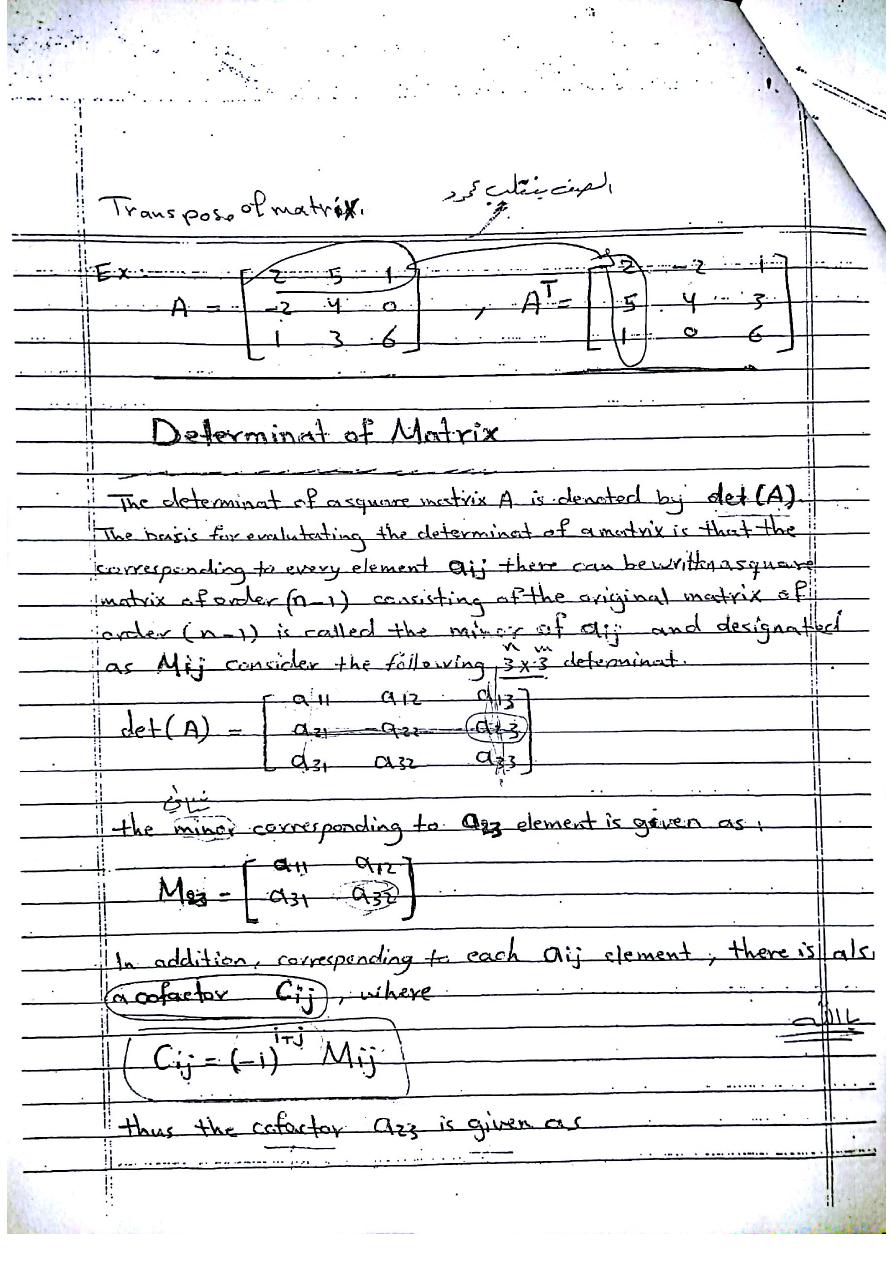 Transpose of matrix.
الصف ينقلب عمود
Ex
A = [ 2 5 1
-2 4 0
1 3 6 ]
, Aᵀ = [ 2 -2 1
5 4 3
1 0 6 ]
Determinat of Matrix
The determinat of a square matrix A is denoted by det(A).
The basis for evalutating the determinat of a matrix is that the
corresponding to every element aij there can be written a square
matrix of order (n-1) consisting of the original matrix of
order (n-1) is called the minor of aij and designated
n m
as Mij consider the following 3x3 determinat.
det(A) = [ a11 a12 a13
a21 a22 a23
a31 a32 a33 ]
the minor corresponding to a23 element is given as:
M23 = [ a11 a12
a31 a32 ]
In addition, corresponding to each aij element, there is als
a cofactor Cij, where
Cij = (-1)^i+j Mij
thus the cofactor a23 is given as